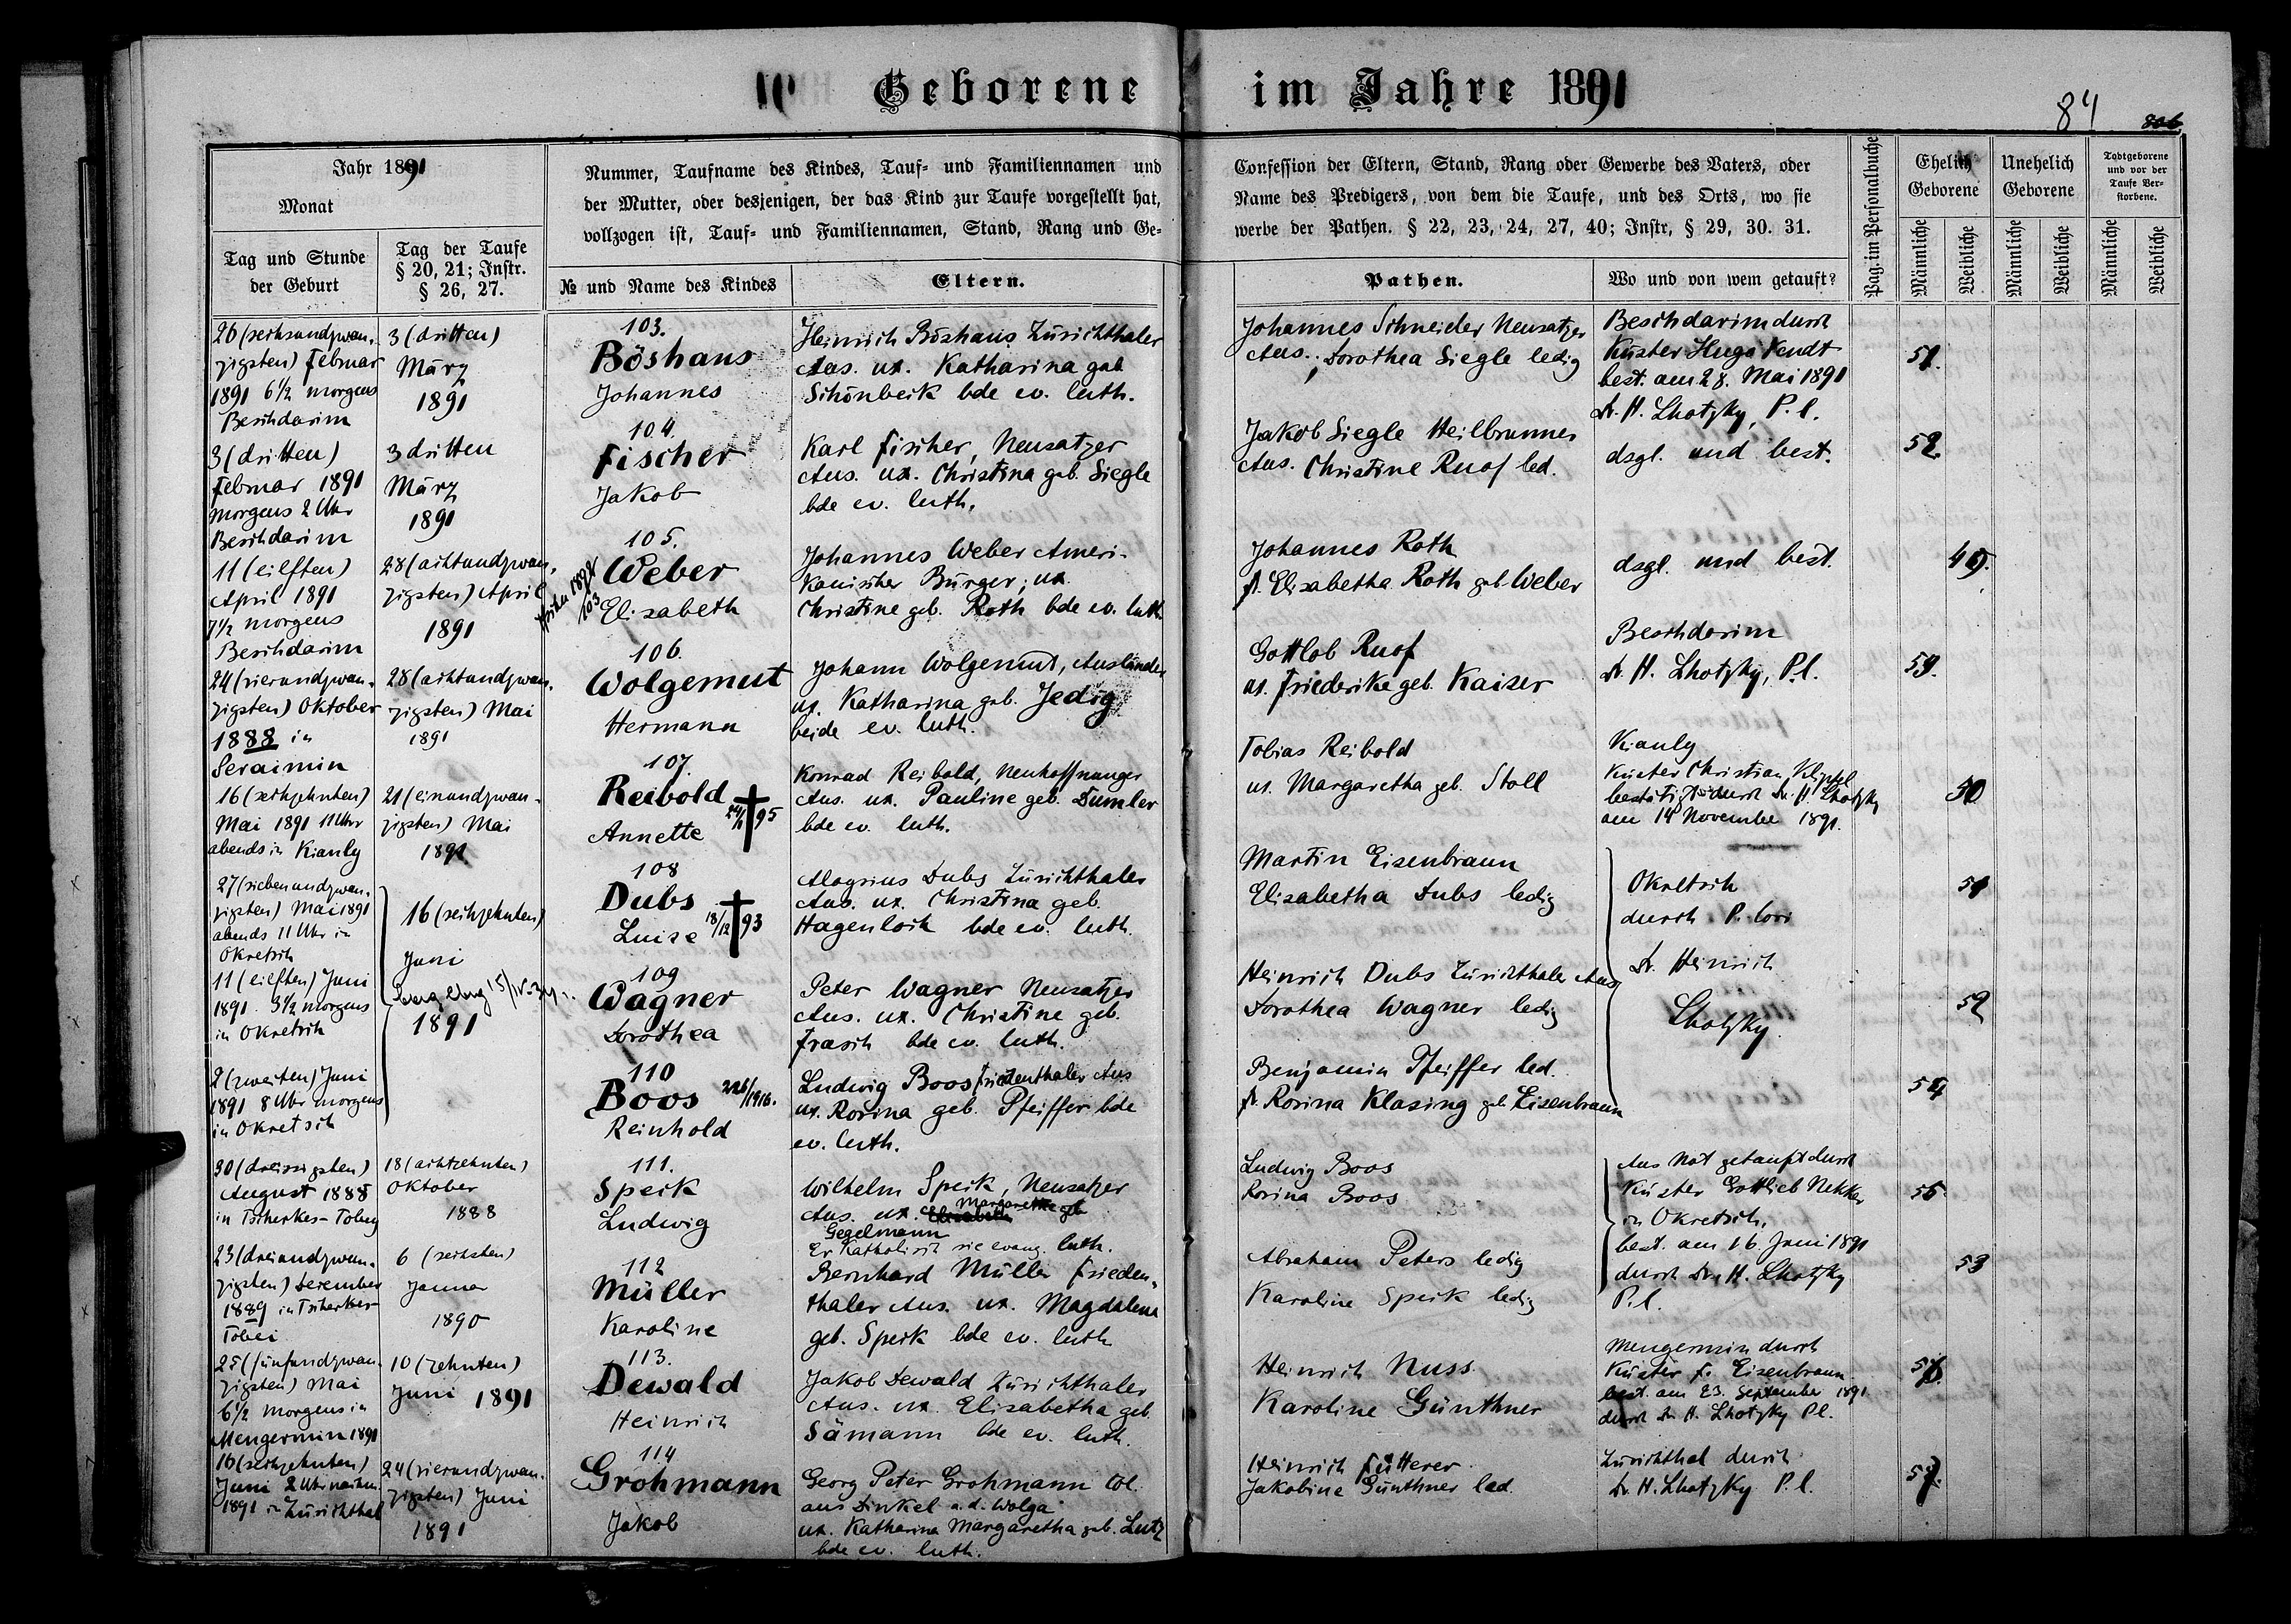 Geborene im Jahre 1891
84
806
Jahr 1891
Monat
Tag und Stunde
der Geburt
Tag der Taufe
§ 20, 21; Instr.
§ 26, 27.
Nummer, Taufname des Kindes, Tauf- und Familiennamen und
der Mutter, oder desjenigen, der das Kind zur Taufe vorgestellt hat,
vollzogen ist, Tauf- und Familiennamen, Stand, Rang und Ge-
№ und Name des Kindes
Eltern.
Confession der Eltern, Stand, Rang oder Gewerbe des Vaters, oder
Name des Predigers, von dem die Taufe, und des Orts, wo sie
werbe der Pathen. § 22, 23, 24, 27, 40; Instr, § 29, 30. 31.
Pathen.
Wo und von wem getauft?
Pag. im Personalbuche
Ehelich
Geborene
Unehelich
Geborene
Todtgeborene
und vor der
Taufe Ver-
storbene.
Männliche
Weibliche
Männliche
Weibliche
Männliche
Weibliche
26 (sechsundzwan-
zigsten) Februar
1891 6½ morgens
Beschdarim
3 (dritten)
März
1891
103.
Böshans
Johannes
Heinrich Böshans Zürichthaler
Aus. ux. Katharina geb
Schönbeck bde ev. luth.
Johannes Schneider Neusatzer
Aus.; Dorothea Siegle ledig
Beschdarim durch
Küster Hugo Kendt
best. am 28. Mai 1891
Dr. H. Lhotzky, P. l.
51.
3 (dritten)
Februar 1891
morgens 2 Uhr
Beschdarim
3 dritten
März
1891
104.
Fischer
Jakob
Karl Fischer, Neusatzer
Aus. ux. Christina geb. Siegle
bde ev. luth.
Jakob Siegle Heilbrunner
Aus. Christine Ruof led.
dsgl. und best.
52.
11 (eilften)
April 1891
7½ morgens
Beschdarim
28 (achtundzwan-
zigsten) April
1891
105.
Weber
Elisabeth
Johannes Weber Ameri-
kanischer Bürger; ux.
Christine geb. Roth bde ev. luth.
Johannes Roth
fr. Elisabetha Roth geb. Weber
dsgl. und best.
49.
24 (vierundzwan-
zigsten) Oktober
1888 in
Seraimin
28 (achtundzwan-
zigsten) Mai
1891
106.
Wolgemut
Hermann
Johann Wolgemut, Ausländer
ux. Katharina geb. Jedig
beide ev. luth.
Gottlob Ruof
ux. Friederike geb. Kaiser
Beschdarim
Dr. H. Lhotzky, P.l.
53.
16 (sechzehnten)
Mai 1891 11 Uhr
abends in Kianly
21 (einundzwan-
zigsten) Mai
1891
107.
Reibold
Annette
95
Konrad Reibold, Neuhoffnunger
Aus. ux. Pauline geb. Dumler
bde ev. luth.
Tobias Reibold
ux. Margaretha geb. Stoll
Kianly
Küster Christian Kliptel
bestätigt durch Dr. H. Lhotzky
am 14 November 1891.
50
27 (siebenundzwan-
zigsten) Mai 1891
abends 11 Uhr in
Okretsch
16 (sechzehnten)
Juni
1891
108
Dubs
Luise 18/12 93
Aloysius Dubs Zürichthaler
Aus. ux. Christina geb.
Hagenloch bde ev. luth.
Martin Eisenbraun
Elisabetha Dubs ledig
Okretsch
durch P. loci
Dr. Heinrich
Lhotzky.
51
11 (eilften) Juni
1891 3½ morgens
in Okretsch
109
Wagner
Dorothea
Peter Wagner Neusatzer
Aus. ux. Christine geb.
Frasch bde ev. luth.
Heinrich Dubs Zürichthaler Aus
Dorothea Wagner ledig
52
2 (zweiten) Juni
1891 8 Uhr morgens
in Okretsch
110
Boos
Reinhold
Ludwig Boos Friedenthaler Aus
ux. Rosina geb. Pfeiffer bde
ev. luth.
Benjamin Pfeiffer led.
fr. Rosina Klasing geb. Eisenbraun
54
30 (dreissigsten)
August 1888
in Tscherkes-Tobey
18 (achtzehnten)
Oktober
1888
111.
Speck
Ludwig
Wilhelm Speck, Neusatzer
Aus. ux. Elisabeth Margarethe geb
Gegelmann
Er katholisch sie evang. luth.
Ludwig Boos
Rosina Boos
Aus Not getauft durch
Küster Gottlieb Nekker
in Okretsch.
best. am 16. Juni 1891
durch Dr. H. Lhotzky
P.l.
55
23 (dreiundzwan-
zigsten) Dezember
1889 in Tscherkes-
Tobei
6 (sechsten)
Januar
1890
112
Müller
Karoline
Bernhard Müller Frieden-
thaler Aus. ux. Magdalena
geb. Speck bde ev. luth
Abraham Peters ledig
Karoline Speck ledig
53
25 (fünfundzwan-
zigsten) Mai
6½ morgens in
Mengermin 1891
10 (zehnten)
Juni 1891
113.
Dewald
Heinrich
Jakob Dewald Zürichthaler
Aus. ux. Elisabetha geb.
Sämann bde ev. luth.
Heinrich Nuss.
Karoline Günthner
Mengermin durch
Küster F. Eisenbraun
best. am 23. September 1891
durch Dr. H. Lhotzky Pl.
56.
16 (sechzehnten)
Juni 2 Uhr nachm.
1891 in Zürichthal
24 (vierundzwan-
zigsten) Juni
1891
114
Grohmann
Jakob
Georg Peter Grohmann Col.
aus Dinkel a.d. Wolga
ux. Katharina Margaretha geb. Lutz
bde ev. luth.
Heinrich Fütterer
Jakobine Günthner led.
Zürichthal durch
Dr. H. Lhotzky P.l.
57.